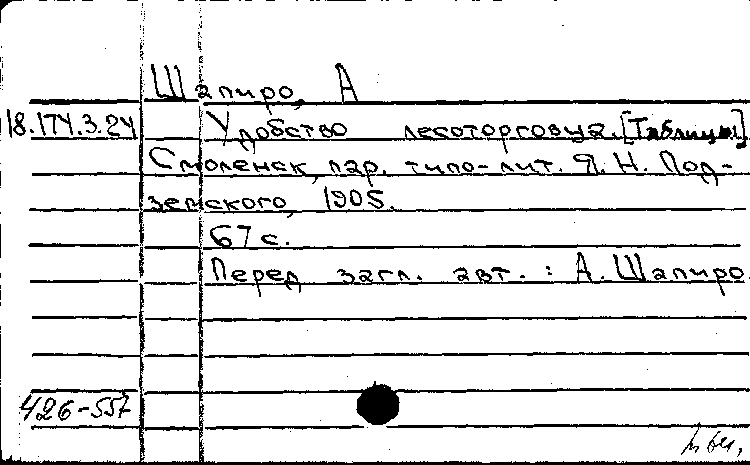 Шапиро, А
18.174.3.24 Удобство лесоторговца. [Таблицы]
Смоленск, пар. типо-лит. Я. Н. Под-
земского, 1905.
67 с.
Перед загл. авт. : А. Шапиро.
426-557